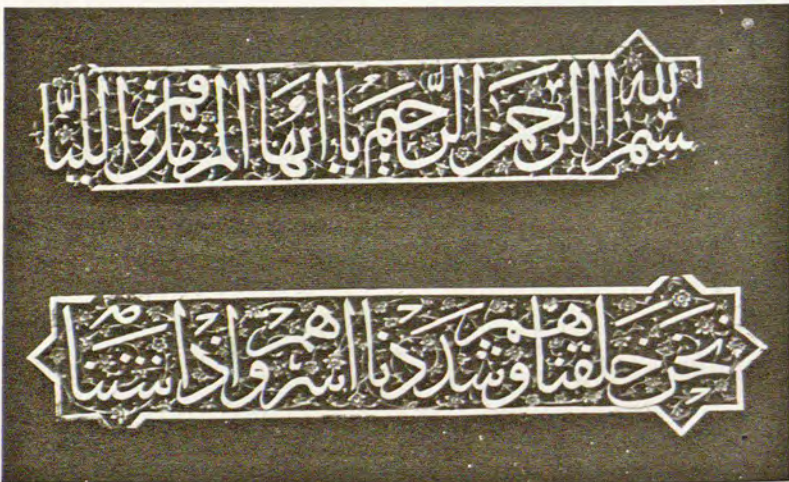 بسم الله الرحمن الرحيم يا ايها المزمل قم اليل
نحن خلقناهم وشددنا اسرهم واذا شئنا